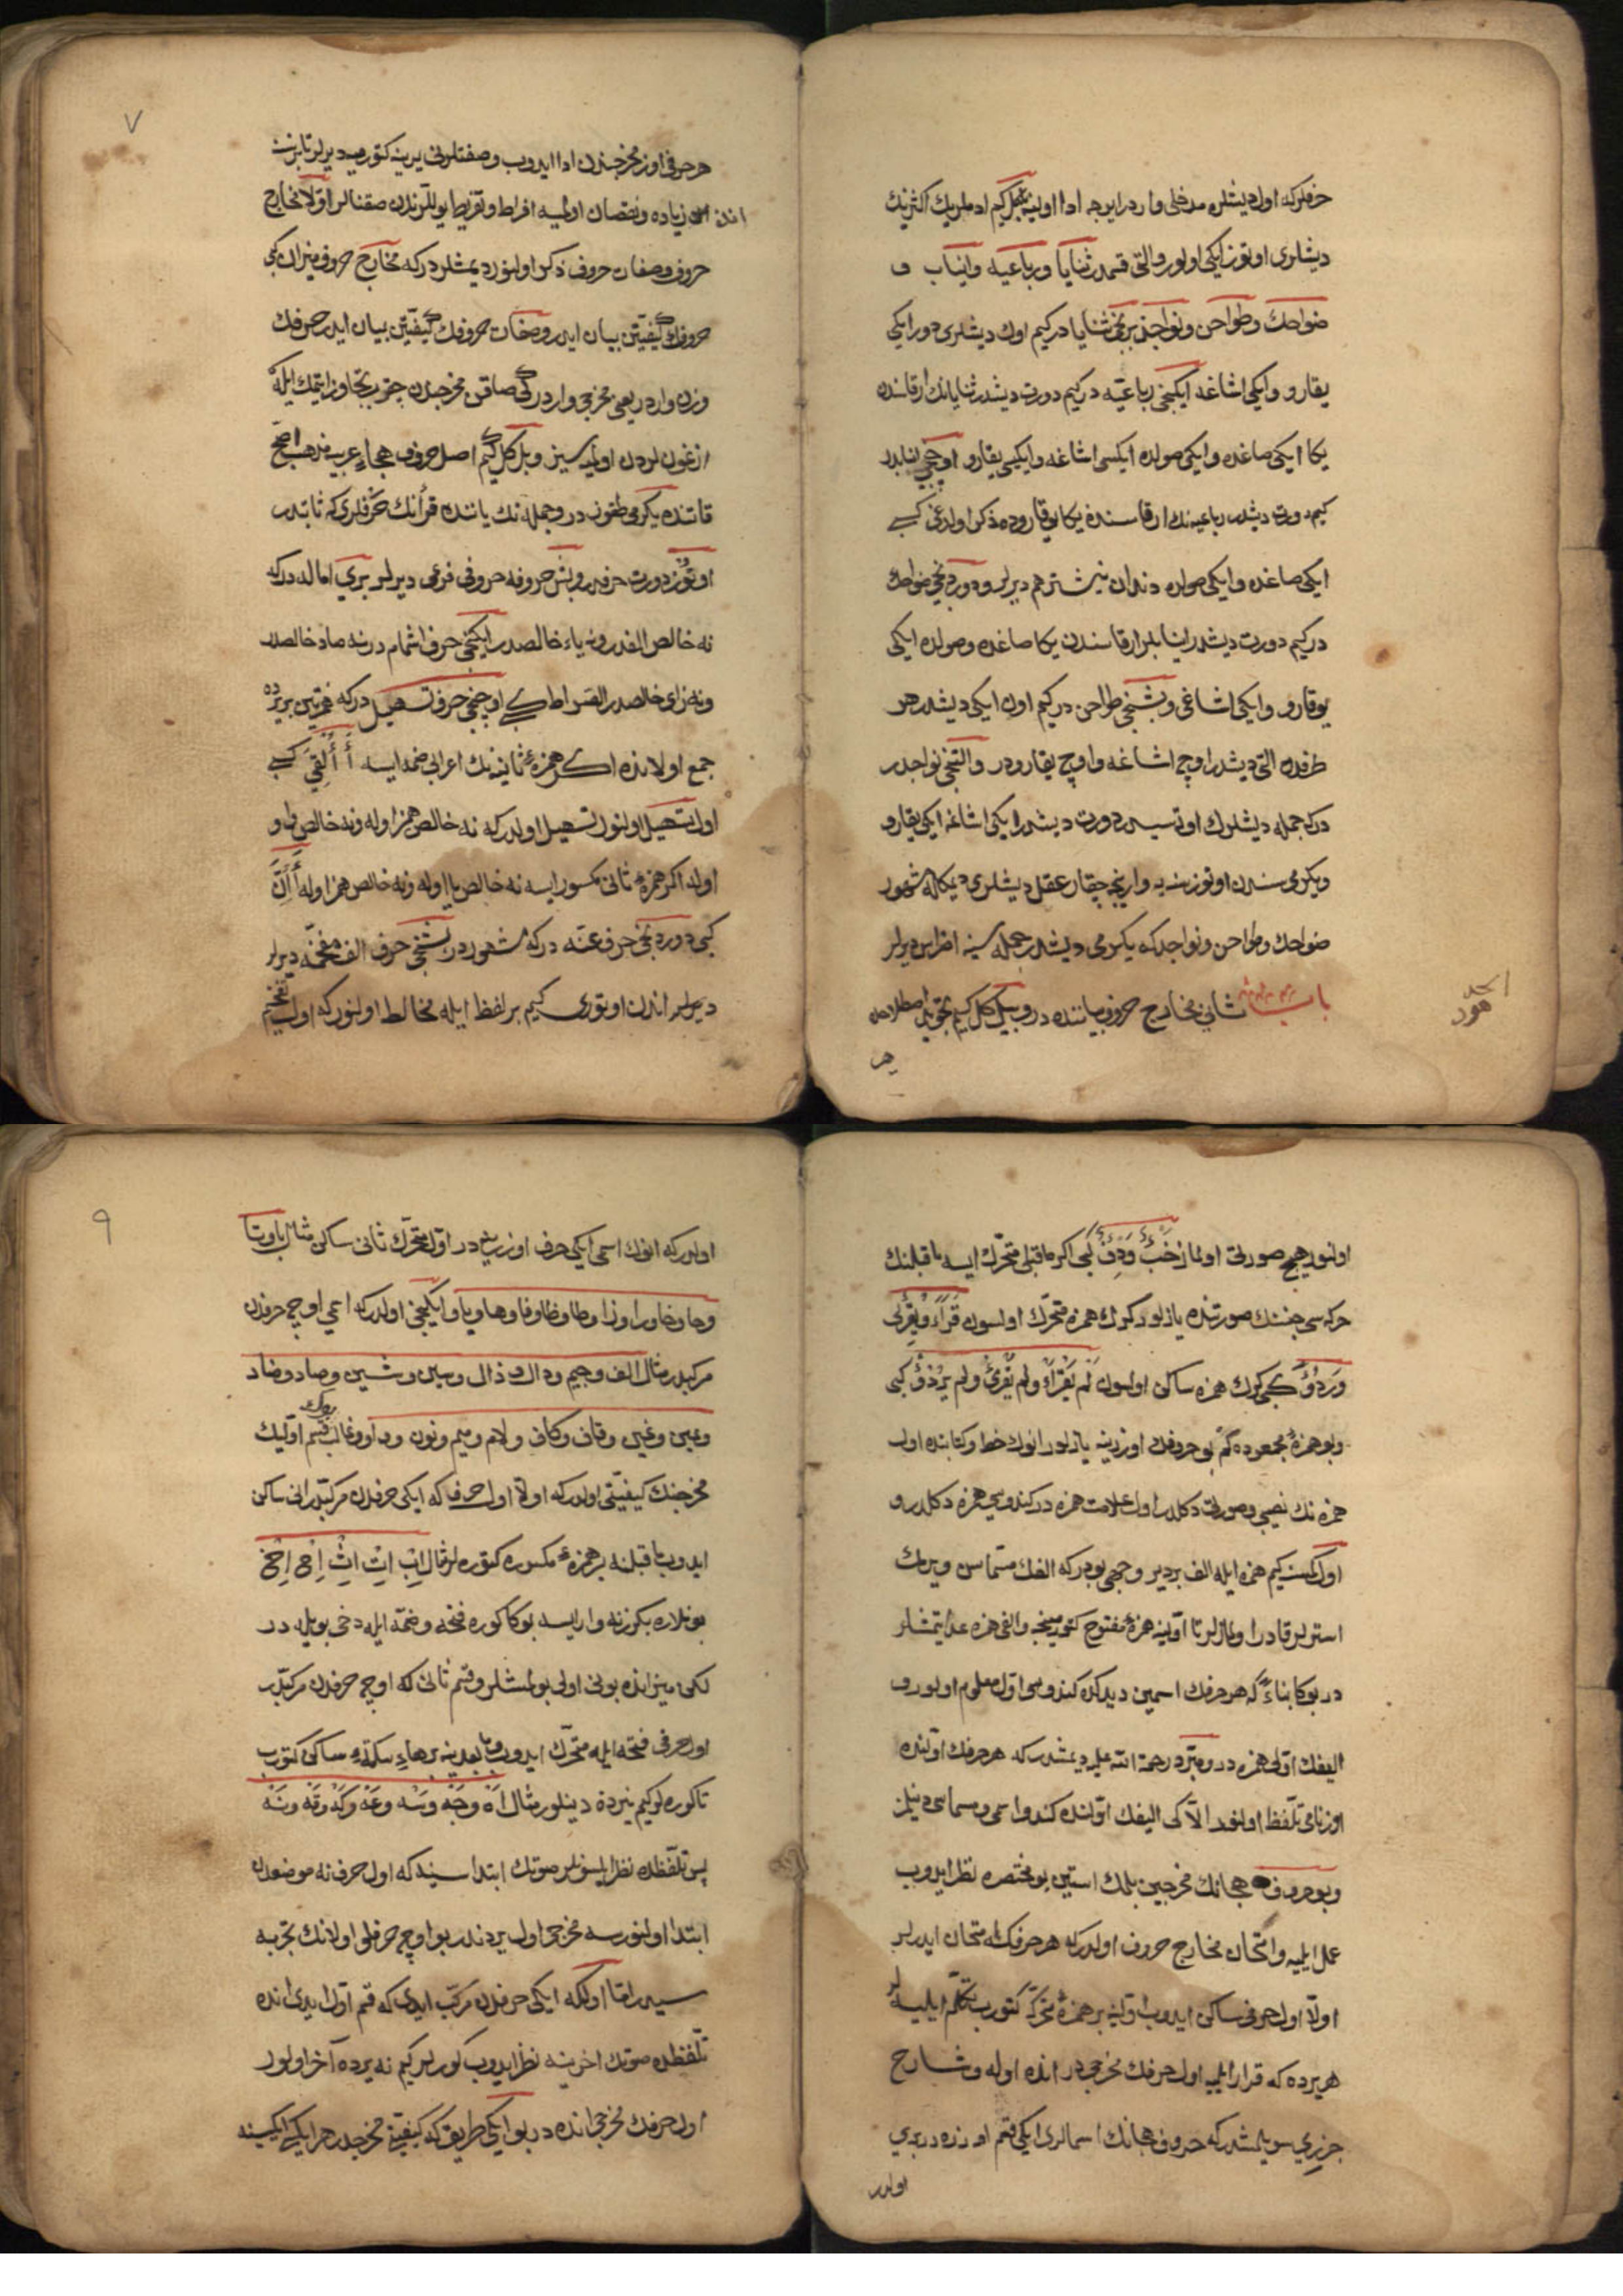 حرفلركه اول ديشلره مدخلی واردر ایرجه ادا اولنه بلكل كیم ادملریك اكثرنك
دیشلری اوتوز ایكی اولور والتی قسمدر ثنایا ورباعیه وانیاب و
ضواحك وطواحن ونواجذ برنجی ثنایا در كیم اوك دیشلری دور ایكی
یقارو وایكی اشاغه ایكنجی رباعیه در كیم دورت دیشدر ثنایانك ارقاسندن
یكا ایكی صاغده وایكی صولده ایكسی اشاغه وایكیسی یقارو اوچنجی انیابدر
كیم دورت دیشدر رباعیه نك ارقاسنده یكا یوقاروده ذكر اولدغی كبی
ایكی صاغده وایكی صولده دندان نیشتر هم دیرلر ودوردنجی ضواحك
در كیم دورت دیشدر انیابلر ارقاسندن یكا صاغده وصولده ایكی
یوقارو وایكی اشاغی وبشنجی طواحن در كیم اون ایكی دیشدر هر
طرفده التی دیشدر اوچ اشاغه واوچ یقارودر والتنجی نواجدر
دركه جمله دیشلرك اوته سیدر دورت دیشدر ایكی اشاغه ایكی یقارو
ویكرمی سندن اوتوزینه وارینجه چقار عقل دیشلری دیمكله مشهور
ضواحك وطواحن ونواجدكه یكرمی دیشدر جمله سینه اضراس دیرلر
باب ثانی مخارج حروف بیاننده در وبلكل كیم تجوید اصطلاحنده
هر
هر حرفی اوز مخرجندن ادا ایدوب وصفتلرنی یرینه كتورمیه دیرلر تا برینه
اندن زیاده ونقصان اولمیه افراط وتفریط یوللرندن صقنالر اوّلا مخارج
حروف وصفات حروف ذكر اولنور دیمشلردركه مخارج حروف میزان كبی
حروفك كیفیتین بیان ایدر وصفات حروفك كیفیّتین بیان ایدر حرفك
وزن واردر یعنی مخرجی واردر كی صاقن مخرجدن چقوب تجاوز ایتمك ایله
ازغونلردن اولمیه سیز وبلكل كیم اصل حروف هجاء عرب مذهب اصح
قاتنده یكرمی طقوز در وجمله نك یاننده قرأنك حرفلری كه ثابتدر
اوتوز دورت حرفدر وبش حروفه حروفی فرعی دیرلر بری اماله دركه
نه خالص الفدر ونه یاء خالصدر ایكنجی حرف اشمام در نه صاد خالصدر
ونه زای خالصدر الصراط كبی اوچنجی حرف تسهیل دركه همزتین بریرده
جمع اولانده اكر همزۀ ثانیه نك اعرابی ضمه ایسه أَأُلْقِیَ كبی
اول تسهیل اولنور تسهیل اولدركه نه خالص همز اوله ونه خالص واو
اوله اكر همزۀ ثانی مكسور ایسه نه خالص یا اوله ونه خالص همز اوله أَإِنَّ
كبی دوردنجی حرف غنه دركه مشهوردر بشنجی حرف الف مفخّمه دیرلر
دیرلر اندن اوتوری كیم بر لفظ ایله مخالط اولنوركه اول تفخیم
اولنور هیچ صورتی اولماز خَبْءٌ وَدِفْءٌ كبی اكر ماقبلی متحرّك ایسه ماقبلنك
حركه سی جنسنك صورتنده یازلور كرك همزه متحرّك اولسون قَرَأَ وقُرِئَ
وَرَدُؤَ كبی كرك همزه ساكن اولسون لَمْ یَقْرَأْ ولم یُقْرِئْ ولم یَرْدُؤْ كبی
وبو همزۀ مجموعده كم بو حروفك اوزرینه یازلور انوك خط وكتابنده اول
همزه نك نصیبی وصورتی دكلدر اول علامت همزه در كندوسی همزه دكلدر و
اول كمسنه كیم همزه ایله الف بر دیر وجهی بودركه الفك مسمّاسن ویرمك
استرلر قادر اولمازلر تا اوّلینه همزۀ مفتوح كتورمینجه والفی همزه عد ایتمشلر
در بوكا بناءً كه هر حرفك اسمین دیدكده كندوسی اوّل معلوم اولور و
الیفك اوّلی همزه در ومبرّد رحمة الله علیه دیمشدركه هر حرفك اوّلنده
اوز نامی تلفّظ اولنور الاّ كی الیفك اوّلنده كندو اسمی ومسماسی دینلمز
وبو حروف هجانك مخرجین بلمك استین بو مختصره نظر ایدوب
عمل ایلیه وامتحان مخارج حروف اولدركه هر حرفك كه امتحان ایدرلر
اولاً اول حرفی ساكن ایدوب اوّلینه بر همزۀ متحرّكه كتوروب تكلّم ایلیه لر
هر یرده كه قرار ایلیه اول حرفك مخرجی در انده اوله وشارح
جزری سویلمشدركه حروف هجانك اسمالری ایكی قسم اوزرهدر بری
اولدر
اولدركه انوك اسمی ایكی حرف اوزرینه در اوّل متحرّك ثانی ساكن مثال با وتا
وحا وخا ورا وزا وطا وظا وفا وها ویا وایكنجی اولدركه اسمی اوچ حرفدن
مركبدر مثال الف وجیم ودال وذال وسین وشین وصاد وضاد
وعین وغین وقاف وكاف ولام ومیم ونون وواو وغالب بونك قسم اوّلیك
مخرجنك كیفیّتی اولدركه اولاً اول حرفكه ایكی حرفدن مركبدر انی ساكن
ایدوب ماقبلنه بر همزۀ مكسوره كتوره لر مثال اِبْ اِتْ اِثْ اِحْ اِخْ
بونلاره بكزرنه وار ایسه بوكا كوره فتحه وضمّه ایله دخی بویله در
لكن میزانده بونی اولی بولمشلر وقسم ثانی كه اوچ حرفدن مركبدر
اول حرفی فتحه ایله متحرّك ایدوب مابعدینه بر هاء سكتۀ ساكن كتورب
تا كوره لر كیم نیرده دینلور مثال اَهْ وَجَهْ وَسَهْ وَعَهْ وَكَهْ وَقَهْ وَنَهْ
پس تلفّظده نظر ایلیه لر صوتك ابتداسینه كه اول حرف نه موضعدن
ابتدا اولنورسه مخرجی اول یردندر بو اوچ حرفلی اولانك تجربه
سیدر امّا اولكه ایكی حرفدن مركّب ایدی كه قسم اوّل ایدی انده
تلفّظده صوتك اخرینه نظر ایدوب كورلر كیم نه یرده آخر اولور
اول حرفك مخرجی انده در بو ایكی طریق كه كیفیّة مخرجدر هر ایكی ایكیسینه